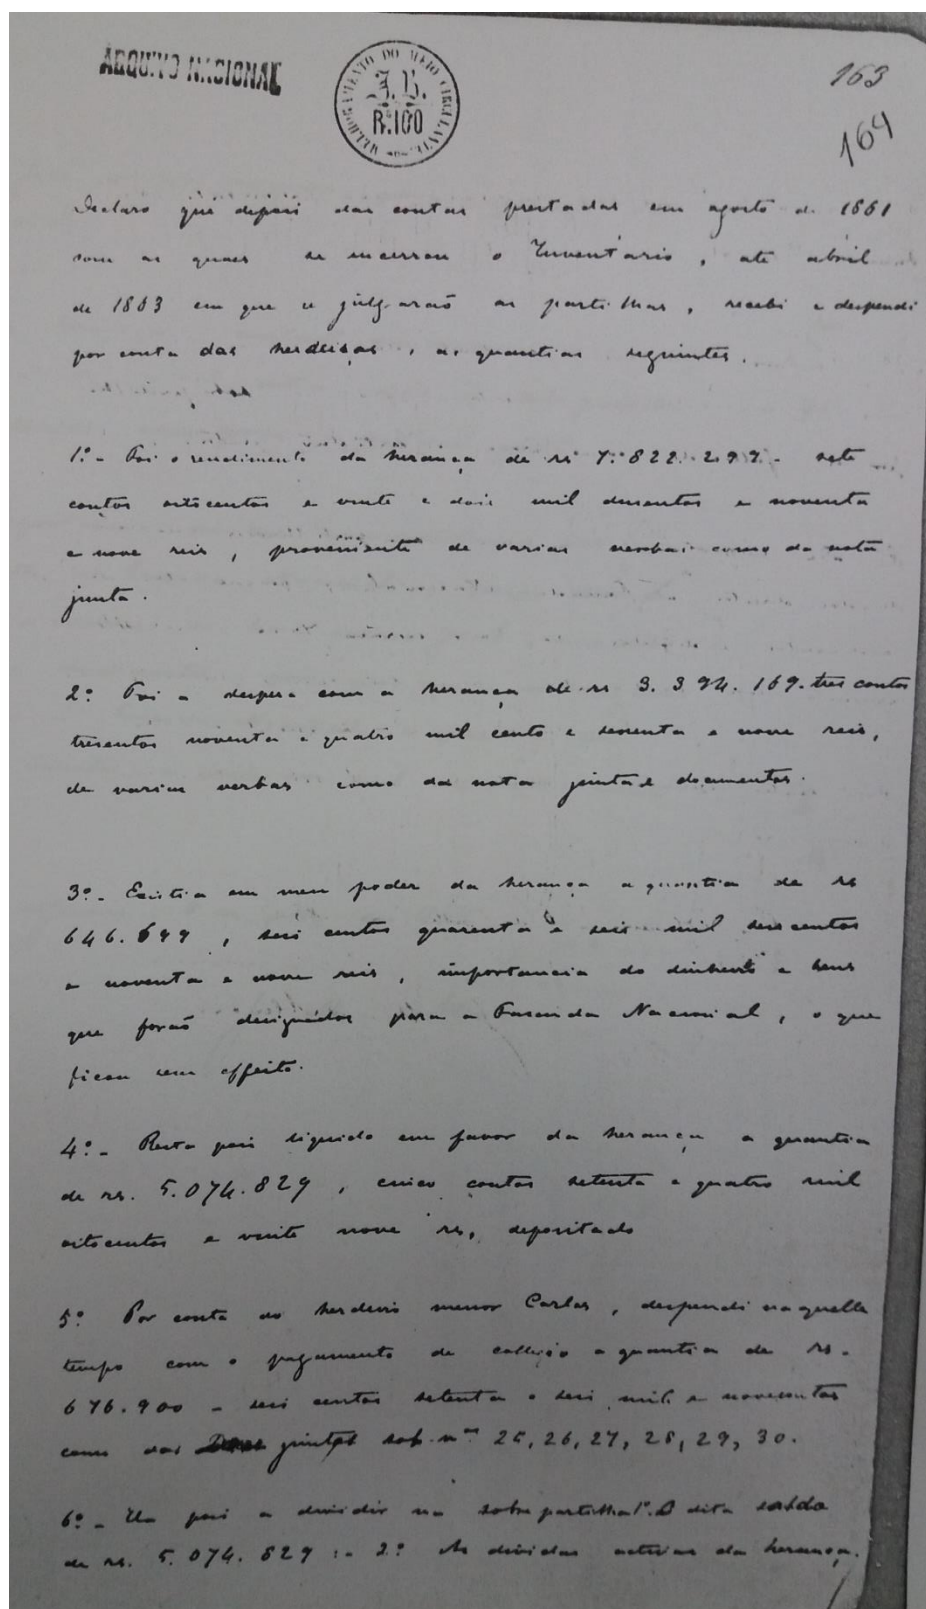 ARQUIVO NACIONAL
MELHORAMENTO DO MEIO CIRCULANTE
J. B.
Rs. 100
163
164
Declaro que depois das contas prestadas em agosto de 1861
com as quaes se encerrou o Inventario, até abril
de 1863 em que se julgarão as partilhas, recebi e despendi
por conta das herdeiras, as quantias seguintes.
1º - Foi o rendimento da herança de rs 7.822.299 - sete
contos oitocentos e vinte e dois mil dusentos e noventa
e nove reis, proveniente de varias verbas como da nota
junta.
2º Foi a despesa com a herança de rs 3.394.169. tres contos
tresentos noventa e quatro mil cento e sessenta e nove reis,
de varias verbas como da nota junta e documentos.
3º - Existia em meu poder da herança a quantia de rs
646.699, seis centos quarenta e seis mil seiscentos
e noventa e nove reis, importancia do dinheiro e bens
que forão designados para a Fasenda Nacional, o que
ficou sem effeito.
4º - Resta pois liquido em favor da herança a quantia
de rs. 5.074.829, cinco contos setenta e quatro mil
oitocentos e vinte nove rs, depositado
5º Por conta do herdeiro menor Carlos, despendi naquelle
tempo com o pagamento de collegio a quantia de rs -
676.900 - seis centos setenta e seis mil e novecentos
como dos juntos sob nos 25, 26, 27, 28, 29, 30.
6º - Ha pois a dividir na sobrepartilha 1º. O dito saldo
de rs. 5.074.829 :- 2º As dividas activas da herança.